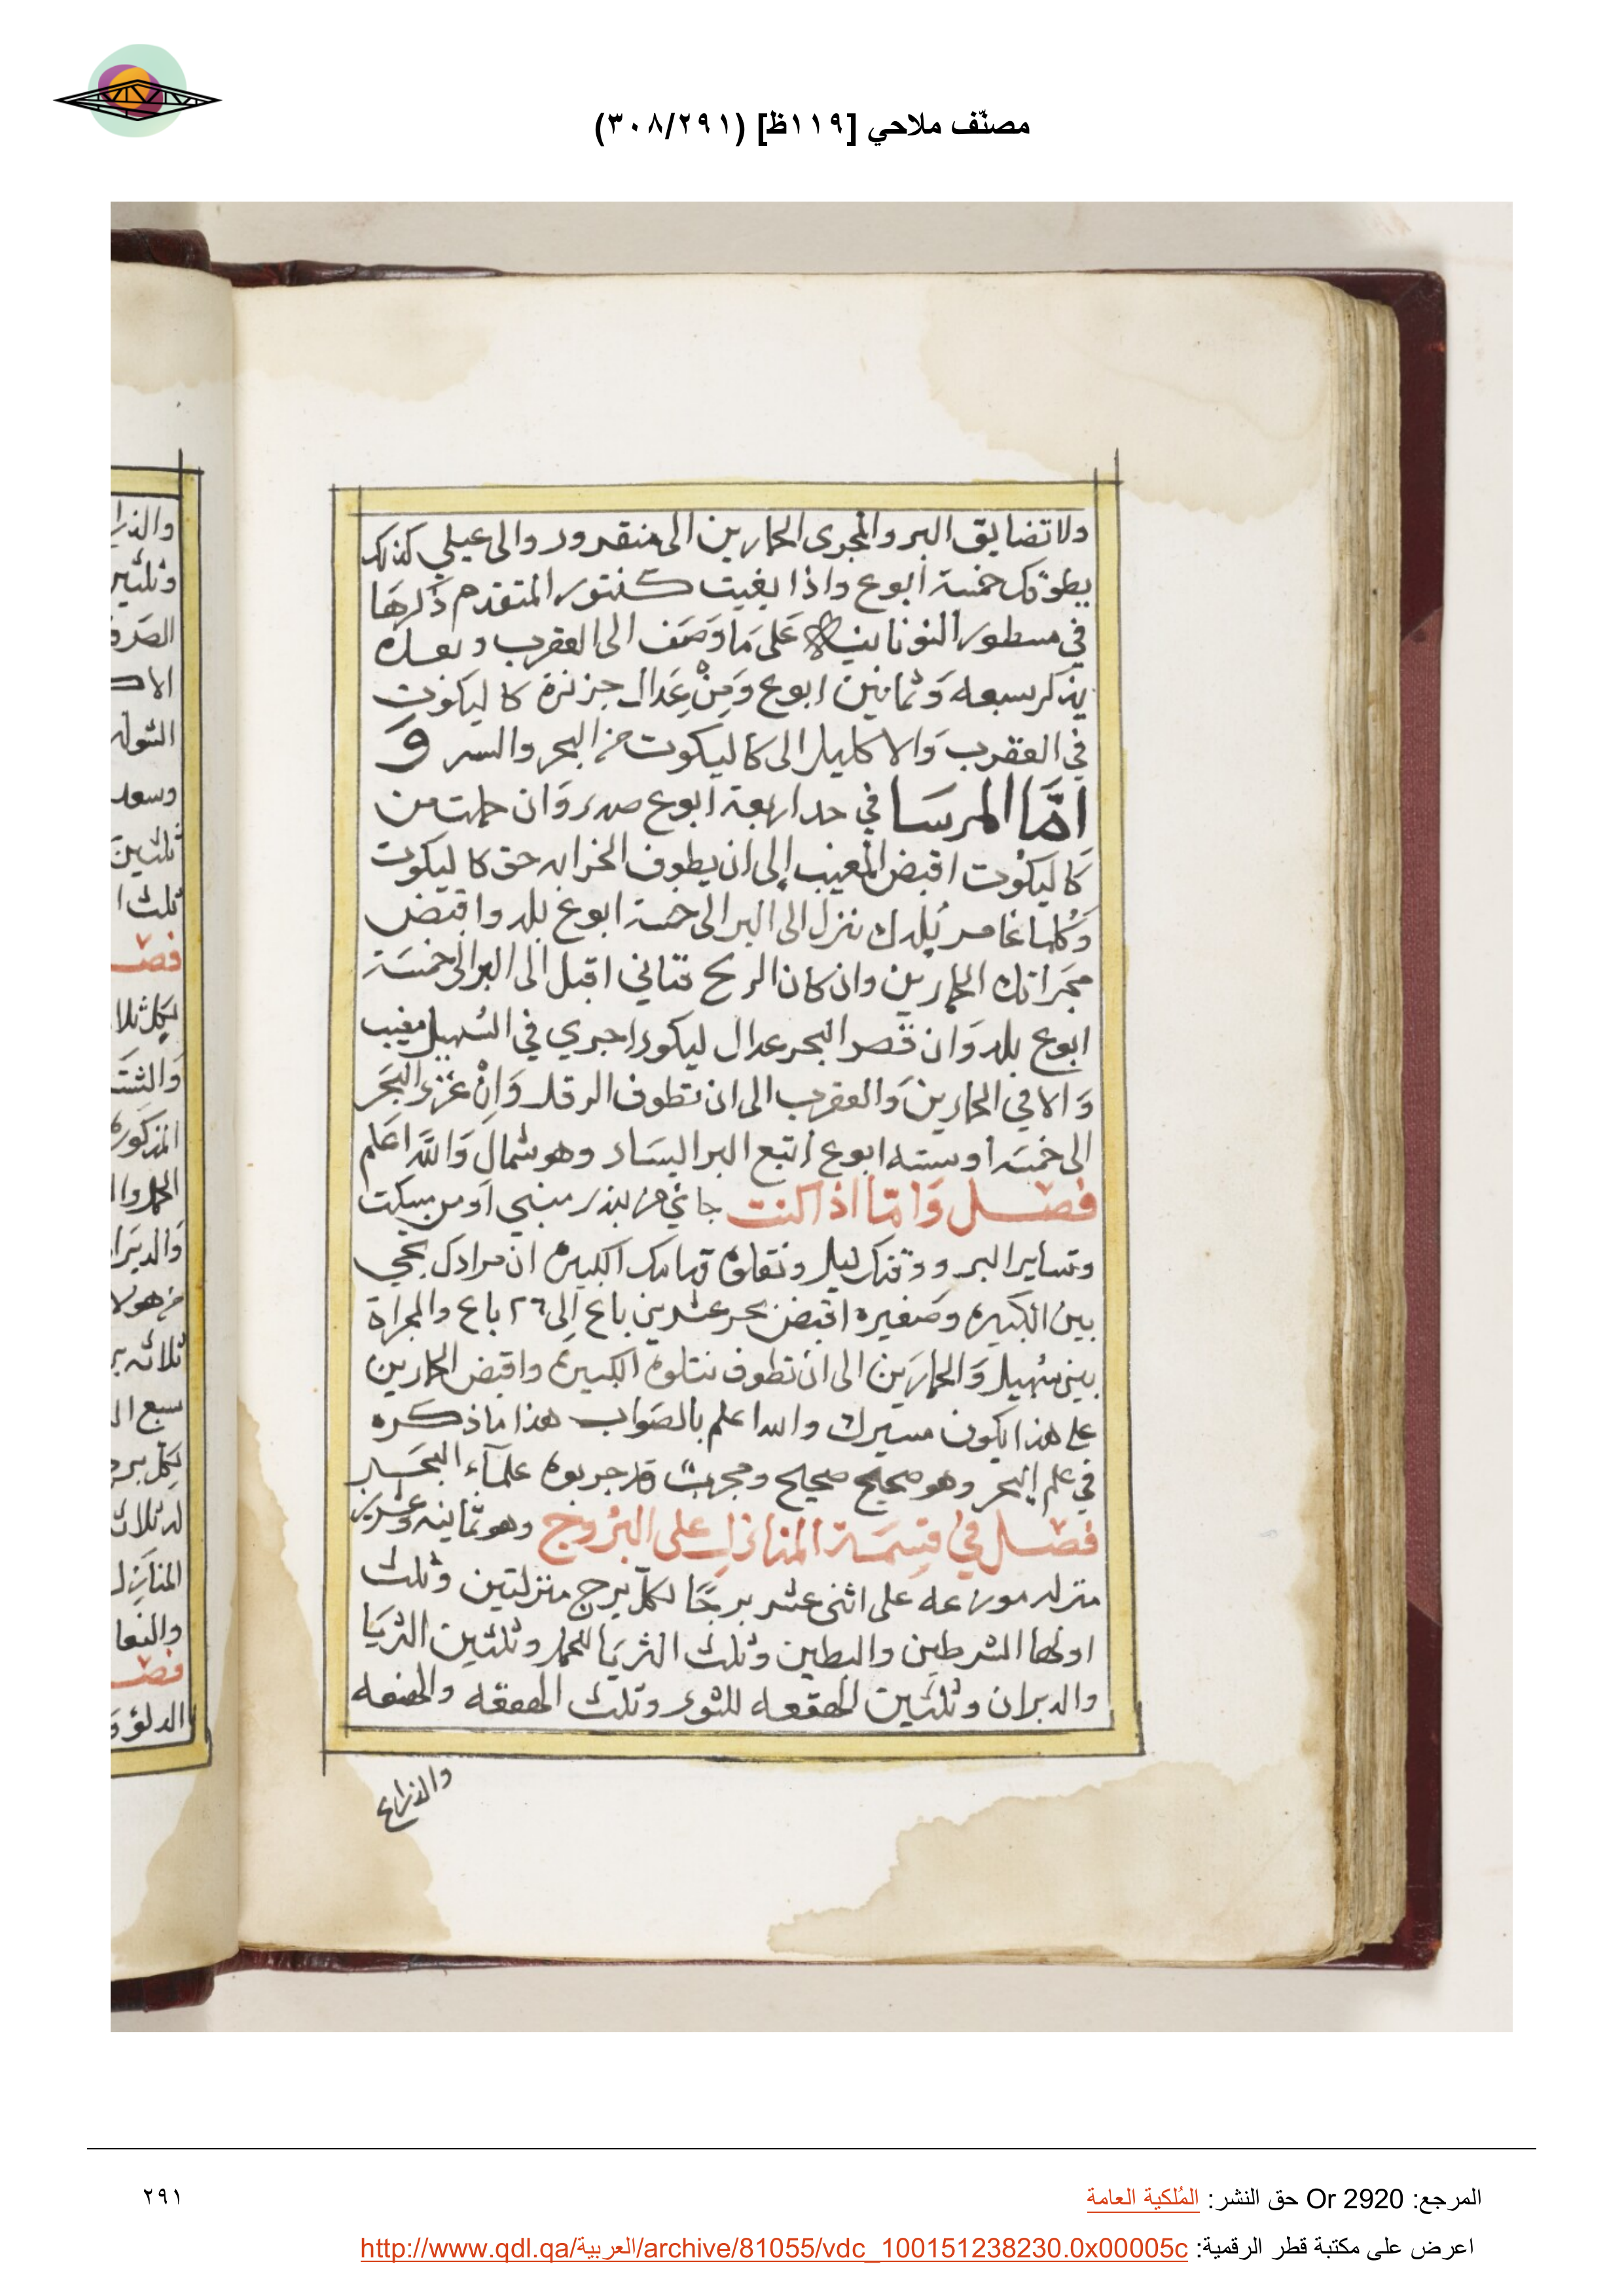 مصنّف ملاحي [١١٩ظ] (٣٠٨/٢٩١)
ولا تضايق البر والمجرى الحمارين الى منقرور والى عيلي كذلك
يطوّفك خمسة ابوع واذا بغيت كنتور المتقدم ذكرها
في مسطور النونانيه عَلى مَا وَصَف الى العقرب وبعده
يذكر سبعه وَثمانين ابوع وَمِنْ عَدال جزيرة كاليكوت
في العقرب وَالاكليل الى كاليكوت من البحر والسر وَ
امَّا المرسَا في حد اربعة ابوع صدر وَان حملت من
كَاليكوُت اقبض المغيب إلى ان يطوف الخرابه حق كاليكوت
وَكُلما غامر بُلدك نزل الى البر الى خمسة ابوع بلد واقبض
مجَراتك الحمارين وان كان الريح فتاني اقبل الى البر الى خمسَة
ابوع بلد وَان قصر البحر عدال ليكور اجري في السُهيل مغيب
وَالا في الحمارين وَالعقرب الى ان تطوف الرقل وَاِنْ غزر البَحَر
الى خمسَه او سته ابوع اتبع البر اليسَار وهو شمال وَاللّه اعَلم
فصل وَامّا اذا كنت جائي من بندر منبي اَو من مسكت
وتساير البر ووقتك ليل ونتلوه قدامك الكبيره ان مرادك تجي
بين الكبيره وصَغيره اقبض بحر عشرين باع اِلى ٢٦ باع والمجراة
بين سُهيل وَالحمارَين الى ان تطوف نتلوه الكبيرة واقبض الحمارين
على هذا يكون مسيرك والله اعلم بالصَواب هذا ما ذكره
في علم البحر وهو صحيح صحيح ومجرب قد جربوه علمآء البحَر
فصل في قِسِمَة المنازلِ على البرُوج وهو ثمانيه وعشرين
منزله موزعه على اثنى عشر برجًا لكل برج منزلتين وثلث
اولها الشرطين والبطين وثلث الثريَا للحمل وثلثين الثريَا
والدبران وثلثين الهقعه للثور وثلث الهقعه والهنعه
والذراع
والذرا
وثلثين
الصَرف
الا
الشوله
وسعد
ثلثين
ثلث ا
فصـ
لكل ثلا
وَالشتَ
المذكوره
الحمل وا
وَالدبَرا
من هولا
ثلاثه بر
سبع ال
لِكل برج
له ثلاث
المنَازِل
والنعا
فصـ
الدلو وَ
المرجع: Or 2920 حق النشر: المُلكية العامة
٢٩١
اعرض على مكتبة قطر الرقمية: http://www.qdl.qa/العربية/archive/81055/vdc_100151238230.0x00005c